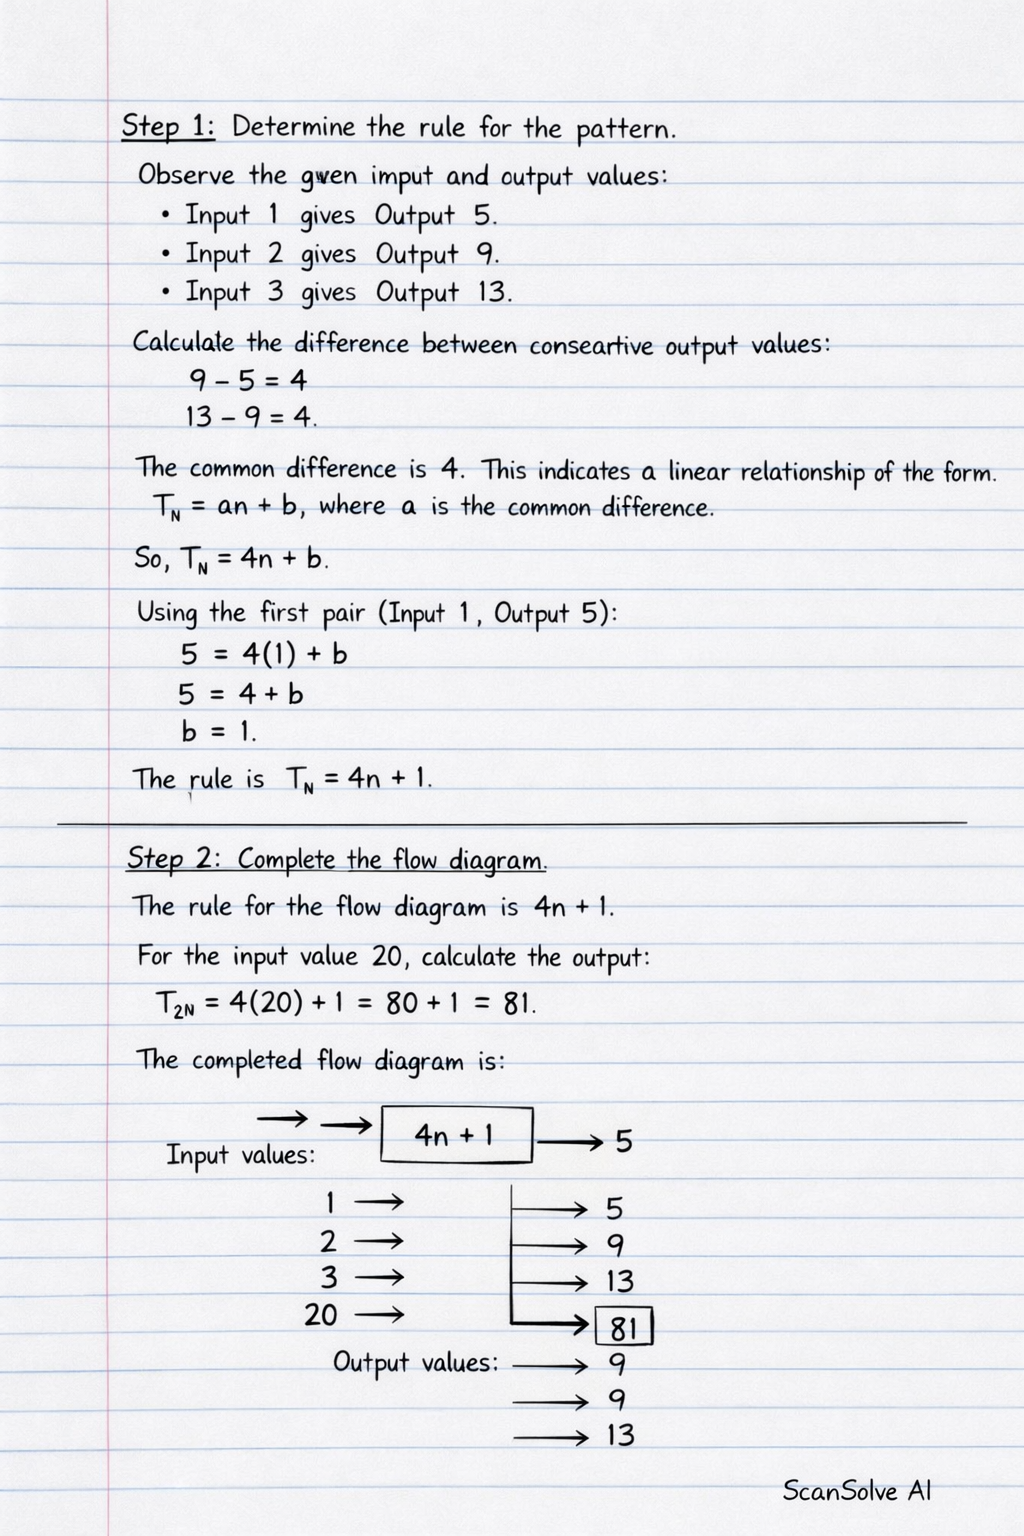 Step 1: Determine the rule for the pattern.
Observe the gwen imput and output values:
• Input 1 gives Output 5.
• Input 2 gives Output 9.
• Input 3 gives Output 13.
Calculate the difference between conseartive output values:
9 – 5 = 4
13 – 9 = 4.
The common difference is 4. This indicates a linear relationship of the form.
T_N = an + b, where a is the common difference.
So, T_N = 4n + b.
Using the first pair (Input 1, Output 5):
5 = 4(1) + b
5 = 4 + b
b = 1.
The rule is T_N = 4n + 1.
Step 2: Complete the flow diagram.
The rule for the flow diagram is 4n + 1.
For the input value 20, calculate the output:
T_2N = 4(20) + 1 = 80 + 1 = 81.
The completed flow diagram is:
→ → 4n + 1 → 5
Input values:
1 → → 5
2 → → 9
3 → → 13
20 → → 81
Output values: → 9
→ 9
→ 13
ScanSolve AI